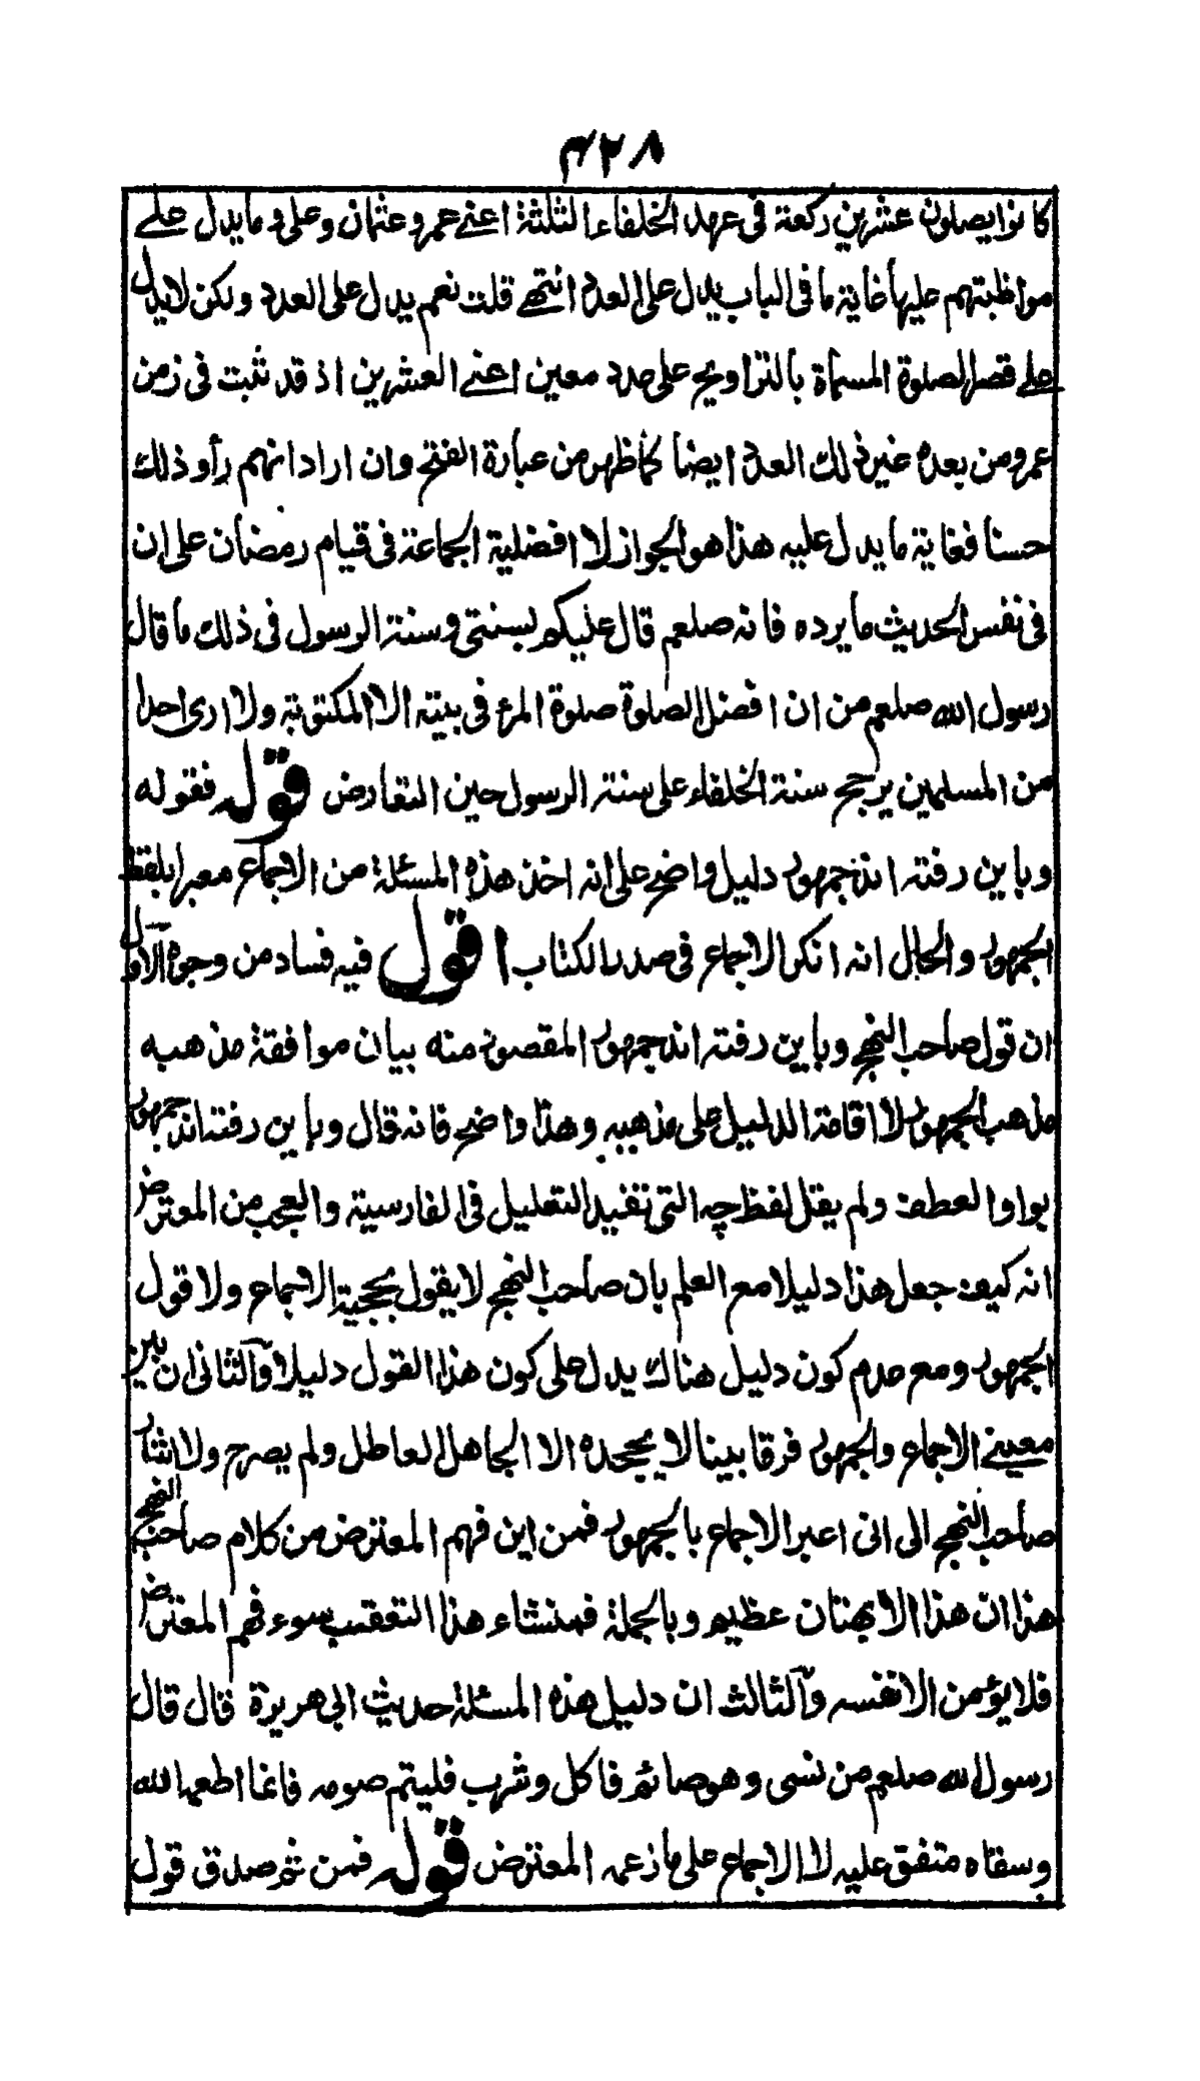 ۴۲۸
كانوا يصلون عشرين ركعة فى عهد الخلفاء الثلثة اعنے عمر و عثمان و على و ما يدل علے
مواظبتهم عليها غاية ما فى الباب يدل على العدد انتهے قلت نعم يدل على العدد ولكن لا يدل
علے قصر الصلوة المسماة بالتراويح على عدد معين اعنے العشرين اذ قد ثبت فى زمن
عمر ومن بعده غير ذلك العدد ايضا كما ظهر من عبارة الفتح وان اراد انهم رأو ذلك
حسنا فغاية ما يدل عليه هذا هو الجواز لا افضلية الجماعة فى قيام رمضان على ان
فى نفس الحديث ما يرده فانه صلعم قال عليكم بسنتى وسنة الرسول فى ذلك ما قال
رسول الله صلعم من ان افضل الصلوة صلوة المرء فى بيته الا المكتوبة ولا ارى احدا
من المسلمين يرجح سنة الخلفاء على سنة الرسول حين التعارض قوله فقوله
وباين رفته اند جمهور دليل واضح على انه اخذ هذه المسئلة من الاجماع معبرا بلفظ
الجمهور والحال انه انكر الاجماع فى صدر الكتاب اقول فيه فساد من وجوه الاول
ان قول صاحب النهج وباين رفته اند جمهور المقصود منه بيان موافقة مذهبه
مذهب الجمهور لا اقامة الدليل على مذهبه وهذا واضح فانه قال وباين رفته اند جمهور
بواو العطف ولم يقل لفظ چه التى تفيد التعليل فى الفارسية والعجب من المعترض
انه كيف جعل هذا دليلا مع العلم بان صاحب النهج لا يقول بحجية الاجماع ولا قول
الجمهور ومع عدم كون دليل هناك يدل على كون هذا القول دليلا والثانى ان بين
معينے الاجماع والجمهور فرقا بينا لا يجحده الا الجاهل العاطل ولم يصرح ولا اشار
صاحب النهج الى انى اعبر الاجماع بالجمهور فمن اين فهم المعترض من كلام صاحب النهج
هذا ان هذا الا بهتان عظيم وبالجملة فمنشاء هذا التعقب سوء فهم المعترض
فلا يؤمن الا نفسه والثالث ان دليل هذه المسئلة حديث ابى هريرة قال قال
رسول الله صلعم من نسى وهو صائم فاكل وشرب فليتم صومه فانما اطعمه الله
وسقاه متفق عليه لا الاجماع على ما زعمه المعترض قوله فمن ثم صدق قول